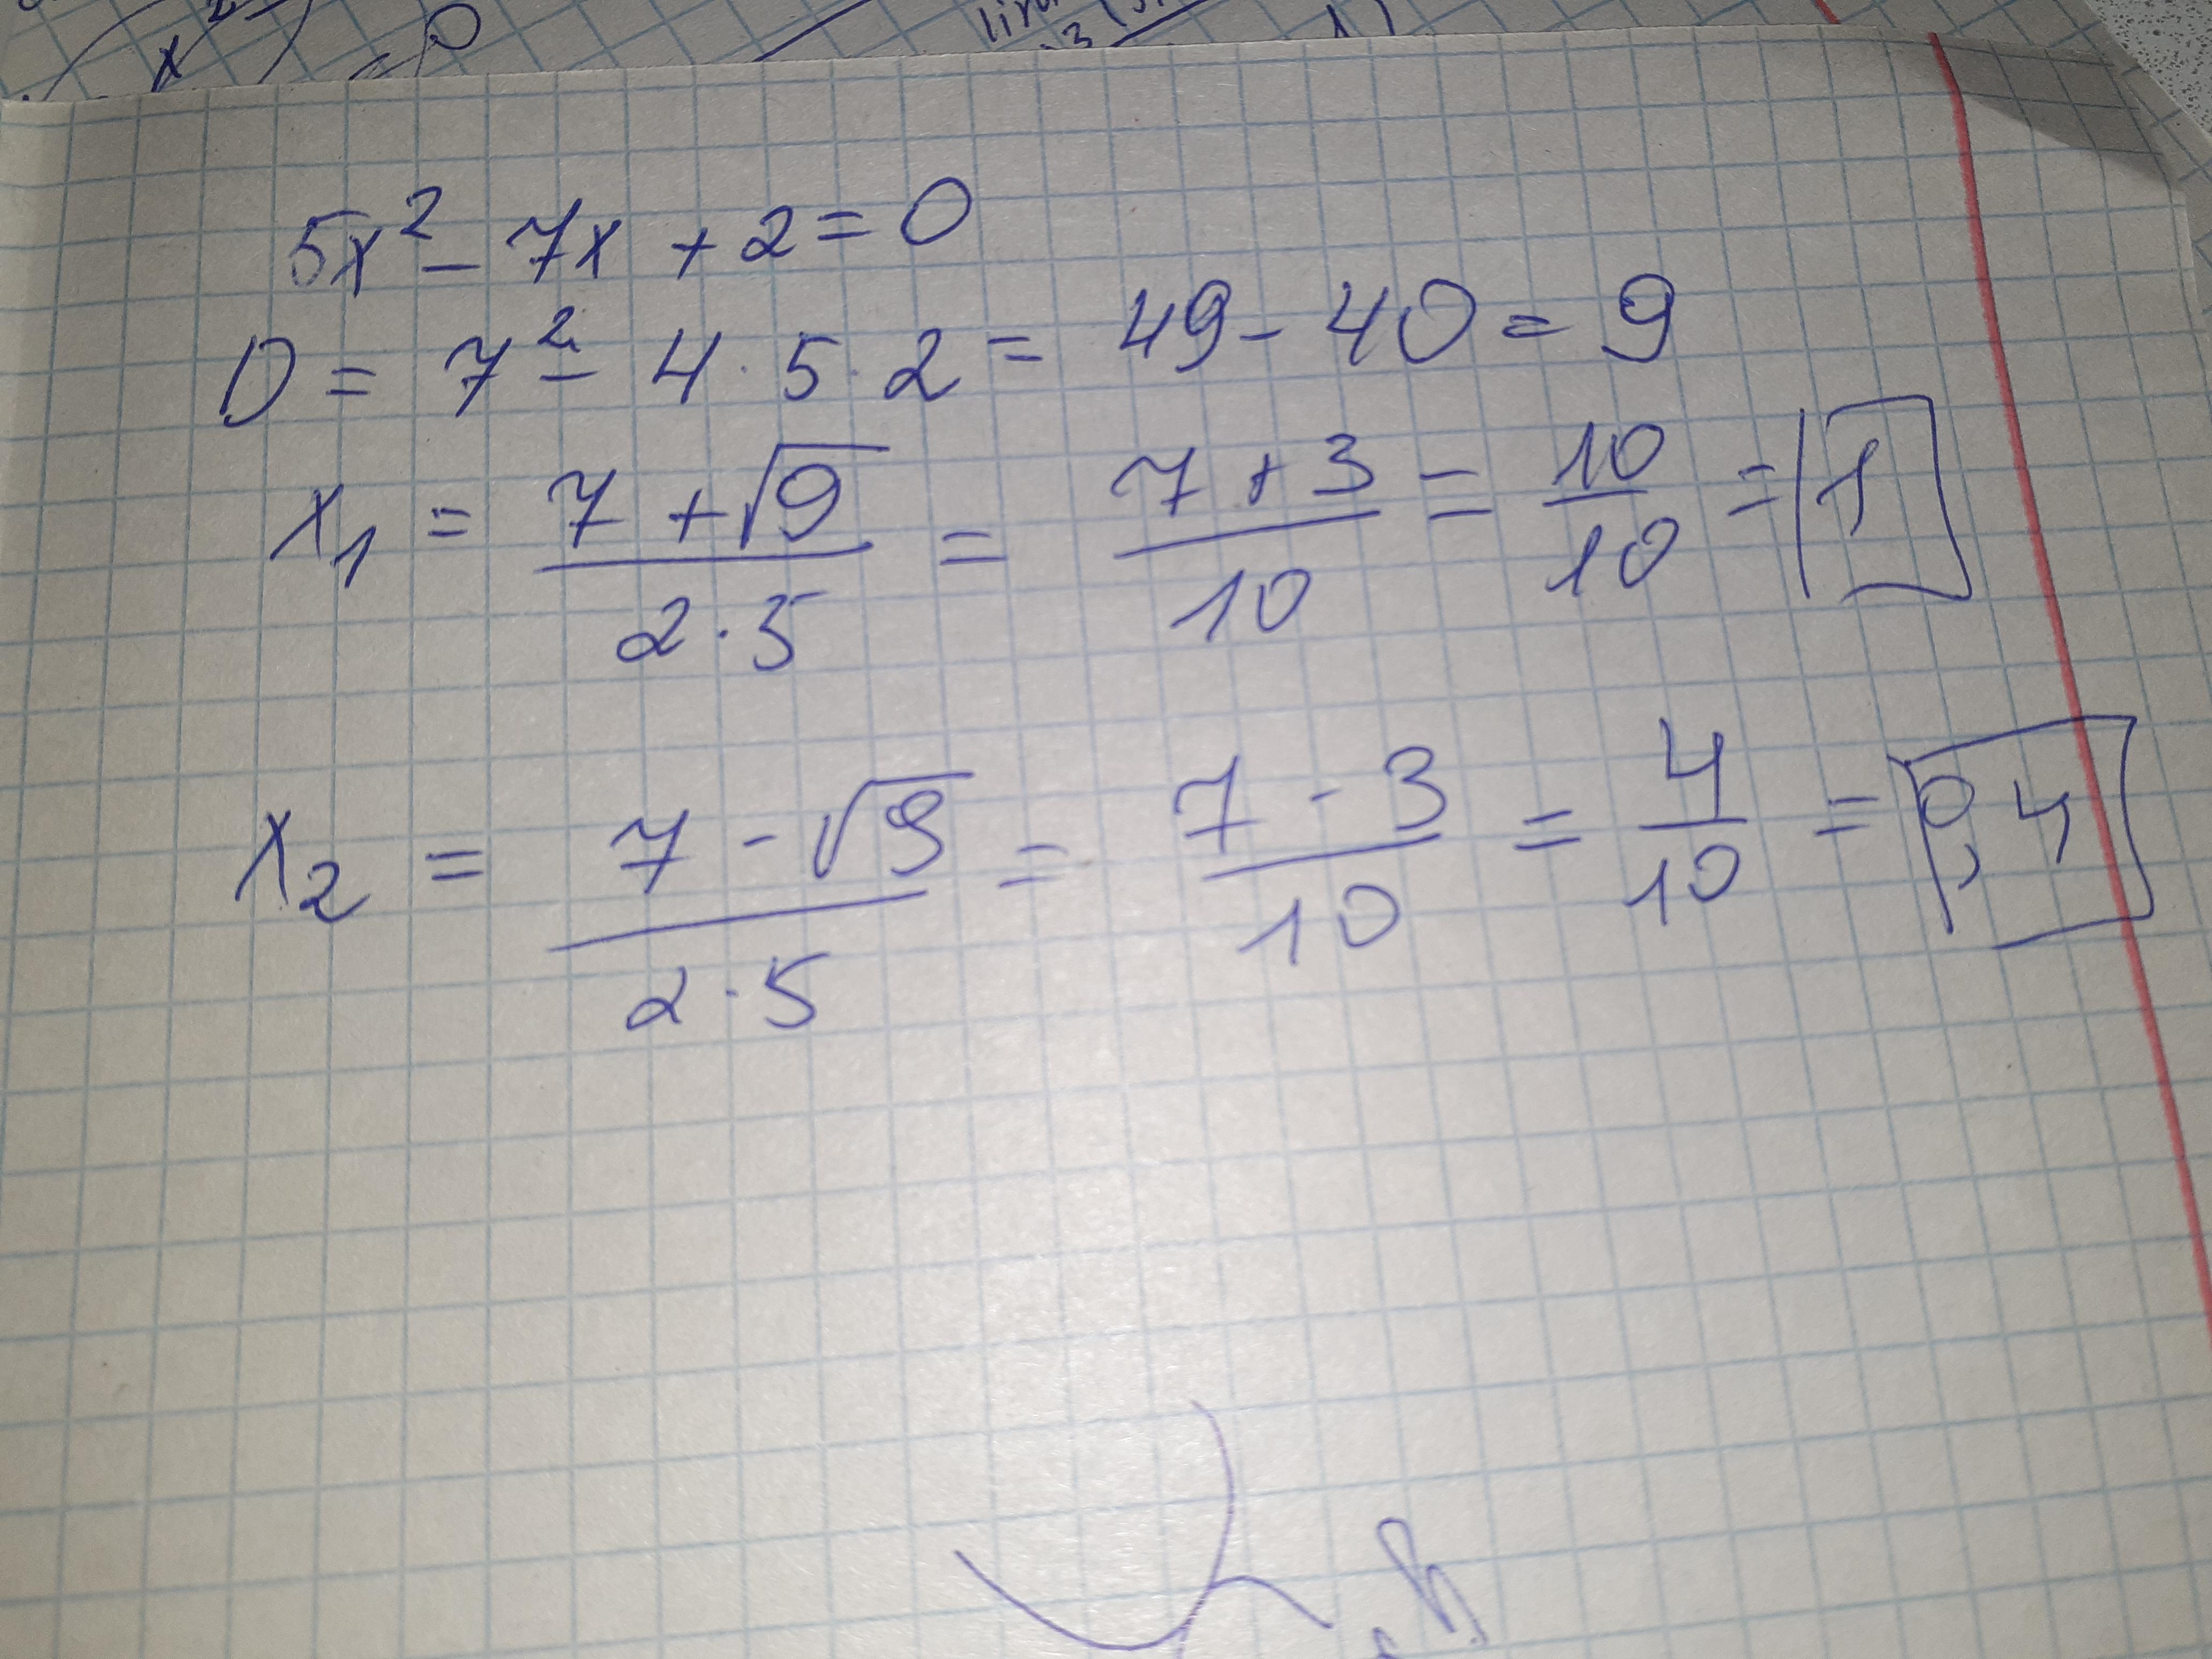 lim
5x² - 7x + 2 = 0
D = 7² - 4 · 5 · 2 = 49 - 40 = 9
x₁ = (7 + √9)/(2 · 5) = (7 + 3)/10 = 10/10 = 1
x₂ = (7 - √9)/(2 · 5) = (7 - 3)/10 = 4/10 = 0,4